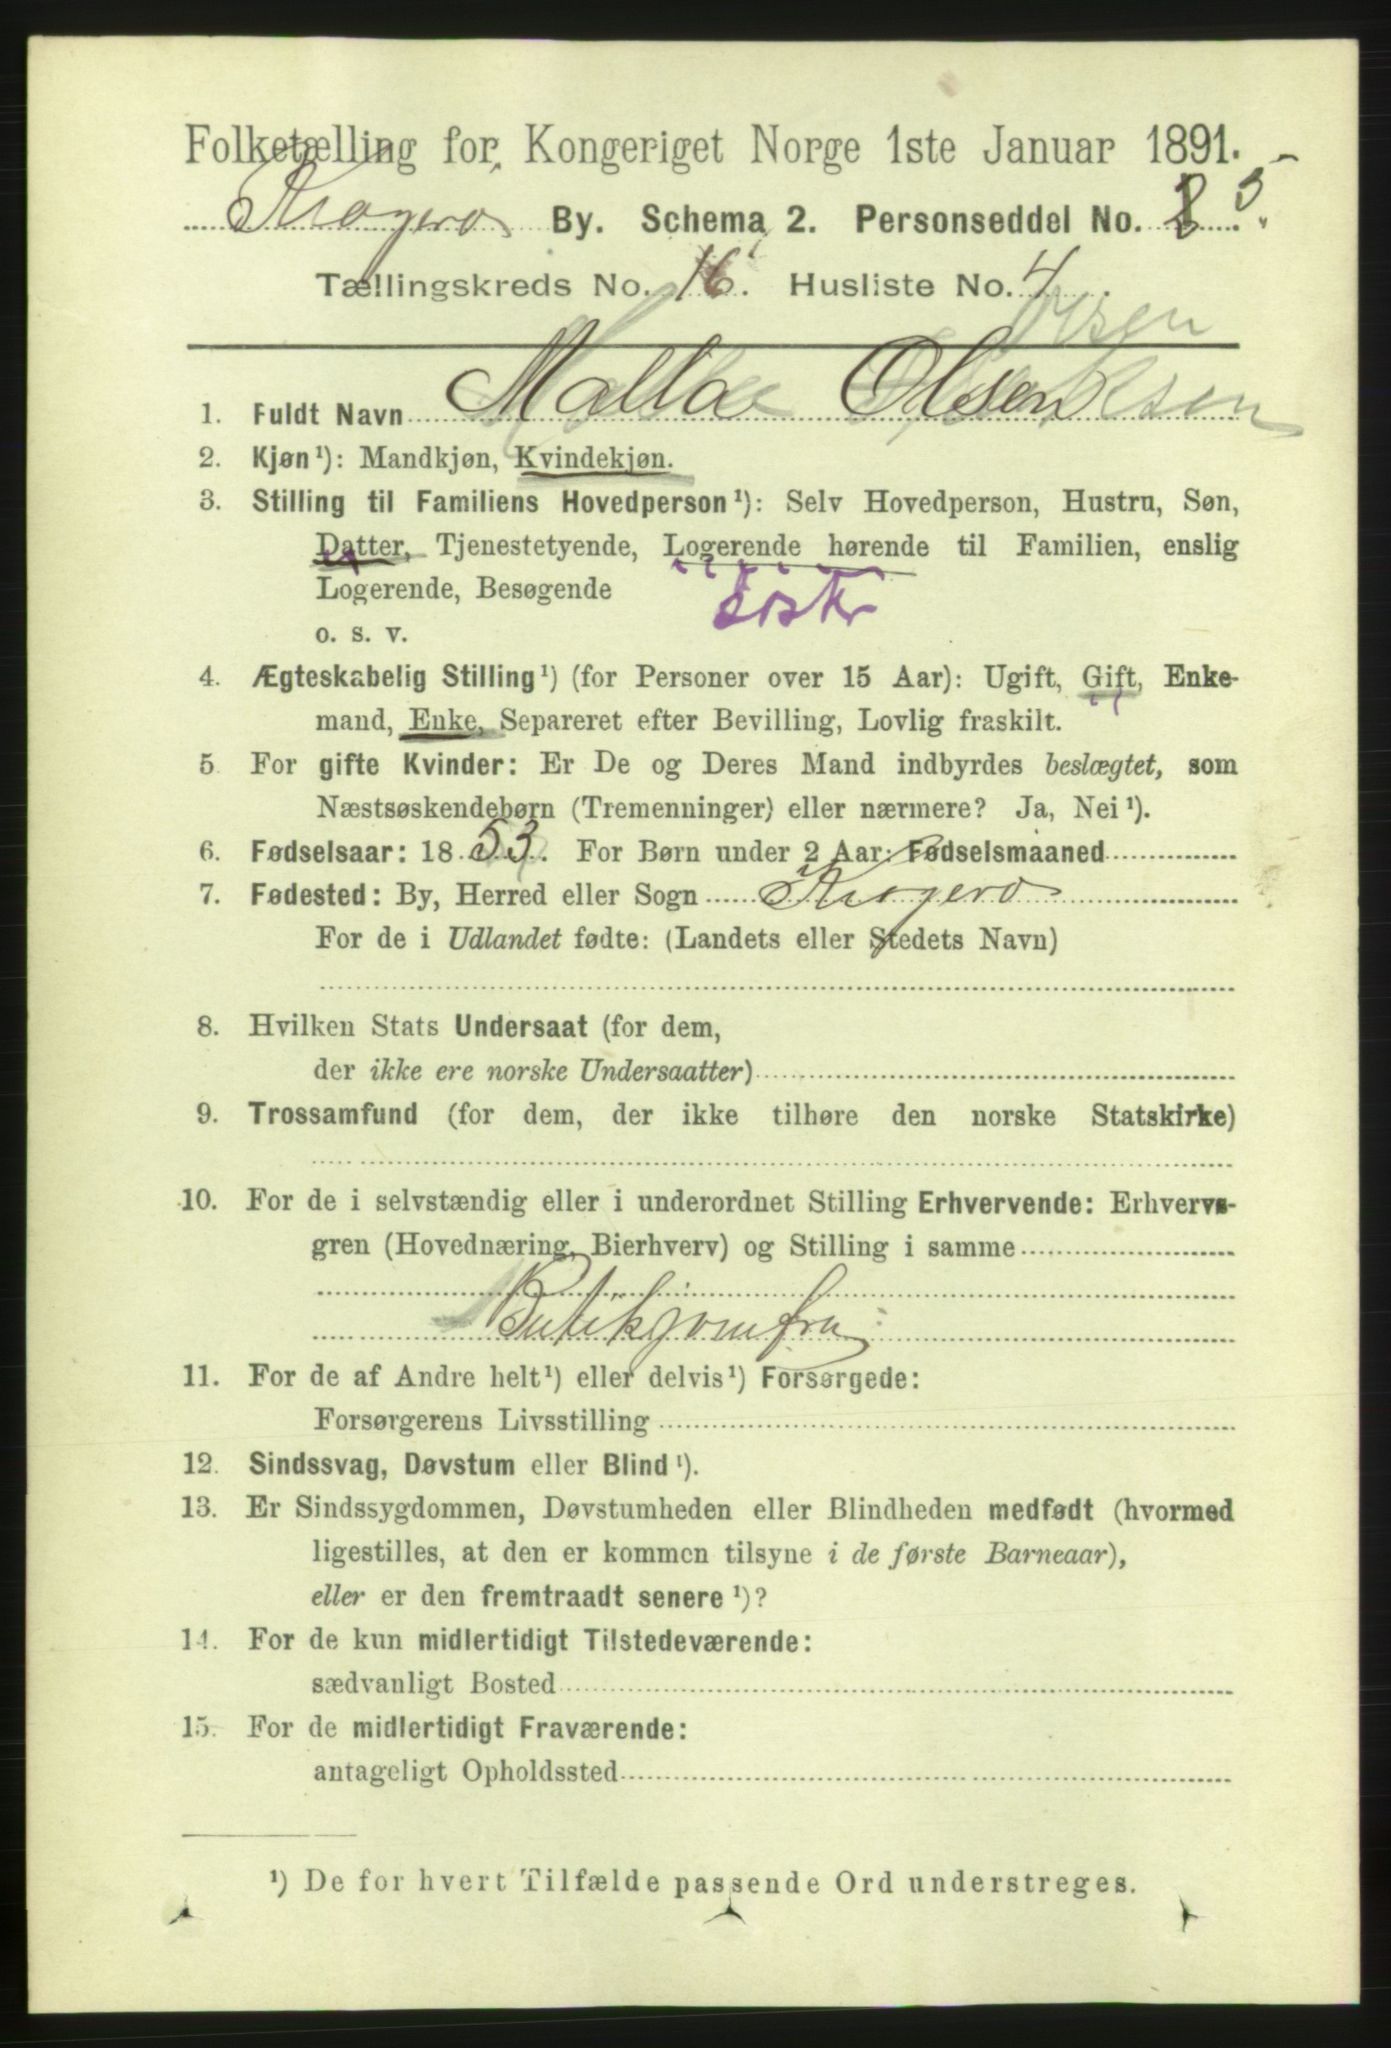 Folketælling for Kongeriget Norge 1ste Januar 1891.
Kragerø By. Schema 2. Personseddel No. 5.
Tællingskreds No. 16. Husliste No. 4.
Olsen
1. Fuldt Navn Malla Olsen
2. Kjøn¹): Mandkjøn, Kvindekjøn.
3. Stilling til Familiens Hovedperson¹): Selv Hovedperson, Hustru, Søn,
Datter, Tjenestetyende, Logerende hørende til Familien, enslig
Logerende, Besøgende
o. s. v.
4. Ægteskabelig Stilling¹) (for Personer over 15 Aar): Ugift, Gift, Enke-
mand, Enke, Separeret efter Bevilling, Lovlig fraskilt.
5. For gifte Kvinder: Er De og Deres Mand indbyrdes beslægtet, som
Næstsøskendebørn (Tremenninger) eller nærmere? Ja, Nei¹).
6. Fødselsaar: 1853. For Børn under 2 Aar: Fødselsmaaned
7. Fødested: By, Herred eller Sogn Kragerø
For de i Udlandet fødte: (Landets eller Stedets Navn)
8. Hvilken Stats Undersaat (for dem,
der ikke ere norske Undersaatter)
9. Trossamfund (for dem, der ikke tilhøre den norske Statskirke)
10. For de i selvstændig eller i underordnet Stilling Erhvervende: Erhvervs-
gren (Hovednæring, Bierhverv) og Stilling i samme
Butikjomfru
11. For de af Andre helt¹) eller delvis¹) Forsørgede:
Forsørgerens Livsstilling
12. Sindssvag, Døvstum eller Blind¹).
13. Er Sindssygdommen, Døvstumheden eller Blindheden medfødt (hvormed
ligestilles, at den er kommen tilsyne i de første Barneaar),
eller er den fremtraadt senere¹)?
14. For de kun midlertidigt Tilstedeværende:
sædvanligt Bosted
15. For de midlertidigt Fraværende:
antageligt Opholdssted
¹) De for hvert Tilfælde passende Ord understreges.